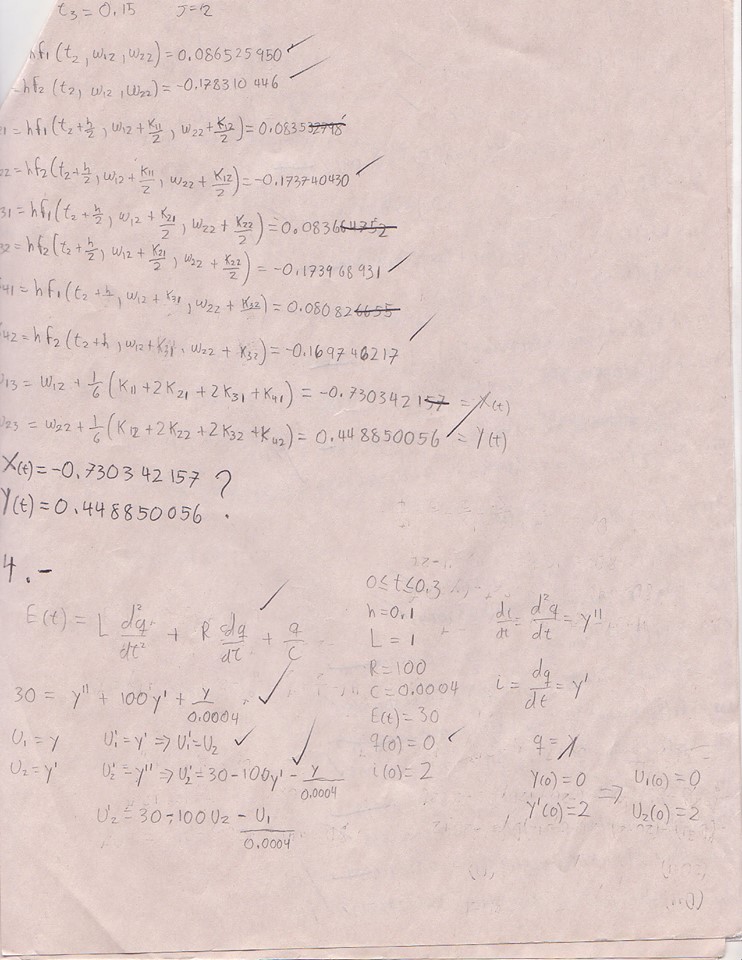 t₃ = 0.15 J=2
hf₁(t₂, w₁₂, w₂₂) = 0.086525950 ✓
= hf₂(t₂, w₁₂, w₂₂) = -0.178310446 ✓
₂₁ = hf₁(t₂+h/2, w₁₂+K₁₁/2, w₂₂+K₁₂/2) = 0.083532798
₂₂ = hf₂(t₂+h/2, w₁₂+K₁₁/2, w₂₂+K₁₂/2) = -0.173740430 ✓
₃₁ = hf₁(t₂+h/2, w₁₂+K₂₁/2, w₂₂+K₂₂/2) = 0.083664752
₃₂ = hf₂(t₂+h/2, w₁₂+K₂₁/2, w₂₂+K₂₂/2) = -0.173968931 ✓
₄₁ = hf₁(t₂+h, w₁₂+K₃₁, w₂₂+K₃₂) = 0.080826655
₄₂ = hf₂(t₂+h, w₁₂+K₃₁, w₂₂+K₃₂) = -0.169746217 ✓
w₁₃ = w₁₂ + 1/6 (K₁₁+2K₂₁+2K₃₁+K₄₁) = -0.730342157 = X(t)
w₂₃ = w₂₂ + 1/6 (K₁₂+2K₂₂+2K₃₂+K₄₂) = 0.448850056 ✓ = Y(t)
X(t) = -0.730342157 ?
Y(t) = 0.448850056
4.-
E(t) = L d²q/dt² + R dq/dt + q/C ✓
30 = y'' + 100y' + y/0.0004 ✓
U₁ = y U₁' = y' ⇒ U₁' = U₂ ✓
U₂ = y' U₂' = y'' ⇒ U₂' = 30-100y' - y/0.0004 ✓
U₂' = 30-100U₂ - U₁/0.0004
0≤t≤0.3
h=0.1
L=1
R=100
C=0.0004
E(t)=30
q(0)=0 ✓
i(0)=2
di/dt = d²q/dt = y''
i = dq/dt = y'
q = y
y(0)=0 ⇒ U₁(0)=0
y'(0)=2 U₂(0)=2